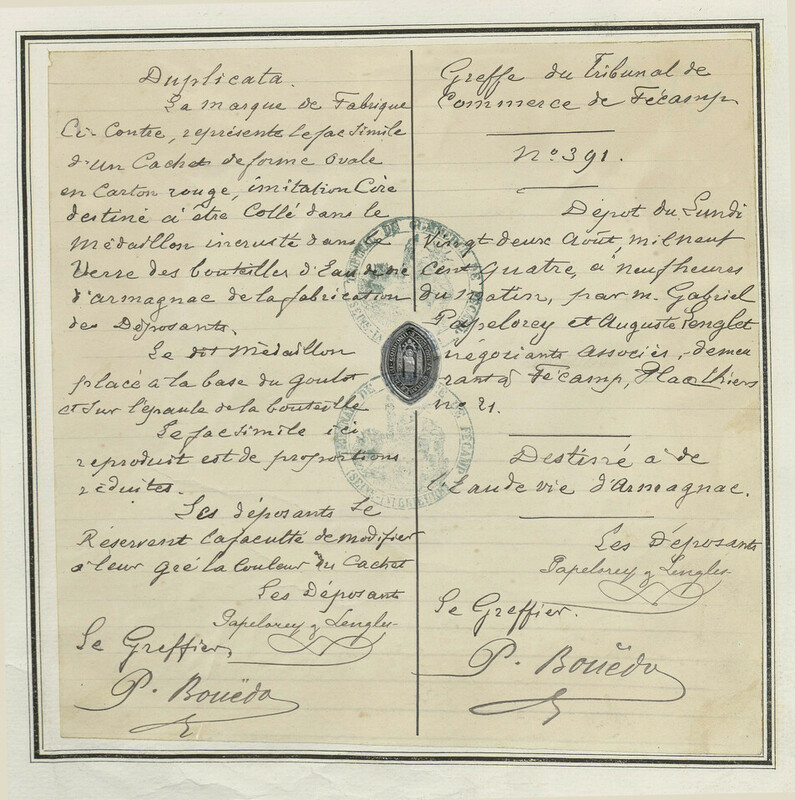 Duplicata.
La marque de Fabrique
Ci-Contre, représente le facsimile
d'un Cachet de forme Ovale
en Carton rouge, imitation Cire
destiné à être Collé dans le
Médaillon incrusté dans le
Verre des bouteilles d'Eau de vie
d'armagnac de la fabrication
des Déposants.
Le dit Médaillon
placé à la base du goulot
et sur l'épaule de la bouteille
Le facsimile ici
reproduit est de proportions
réduites.
Les déposants se
Réservent la faculté de modifier
à leur gré la Couleur du Cachet
Les Déposants
Papelorey & Lenglet
Le Greffier,
P. Bouëdo
Greffe du Tribunal de
Commerce de Fécamp
No. 391.
Dépot du Lundi
Vingt deux Août, mil neuf
Cent quatre, à neuf heures
du matin, par M. Gabriel
Papelorey et Auguste Lenglet
négociants associés, demeu
rant à Fécamp, Place Thiers
no 21.
Destiné à de
l'Eau de vie d'Armagnac.
Les Déposants
Papelorey & Lenglet
Le Greffier.
P. Bouëdo